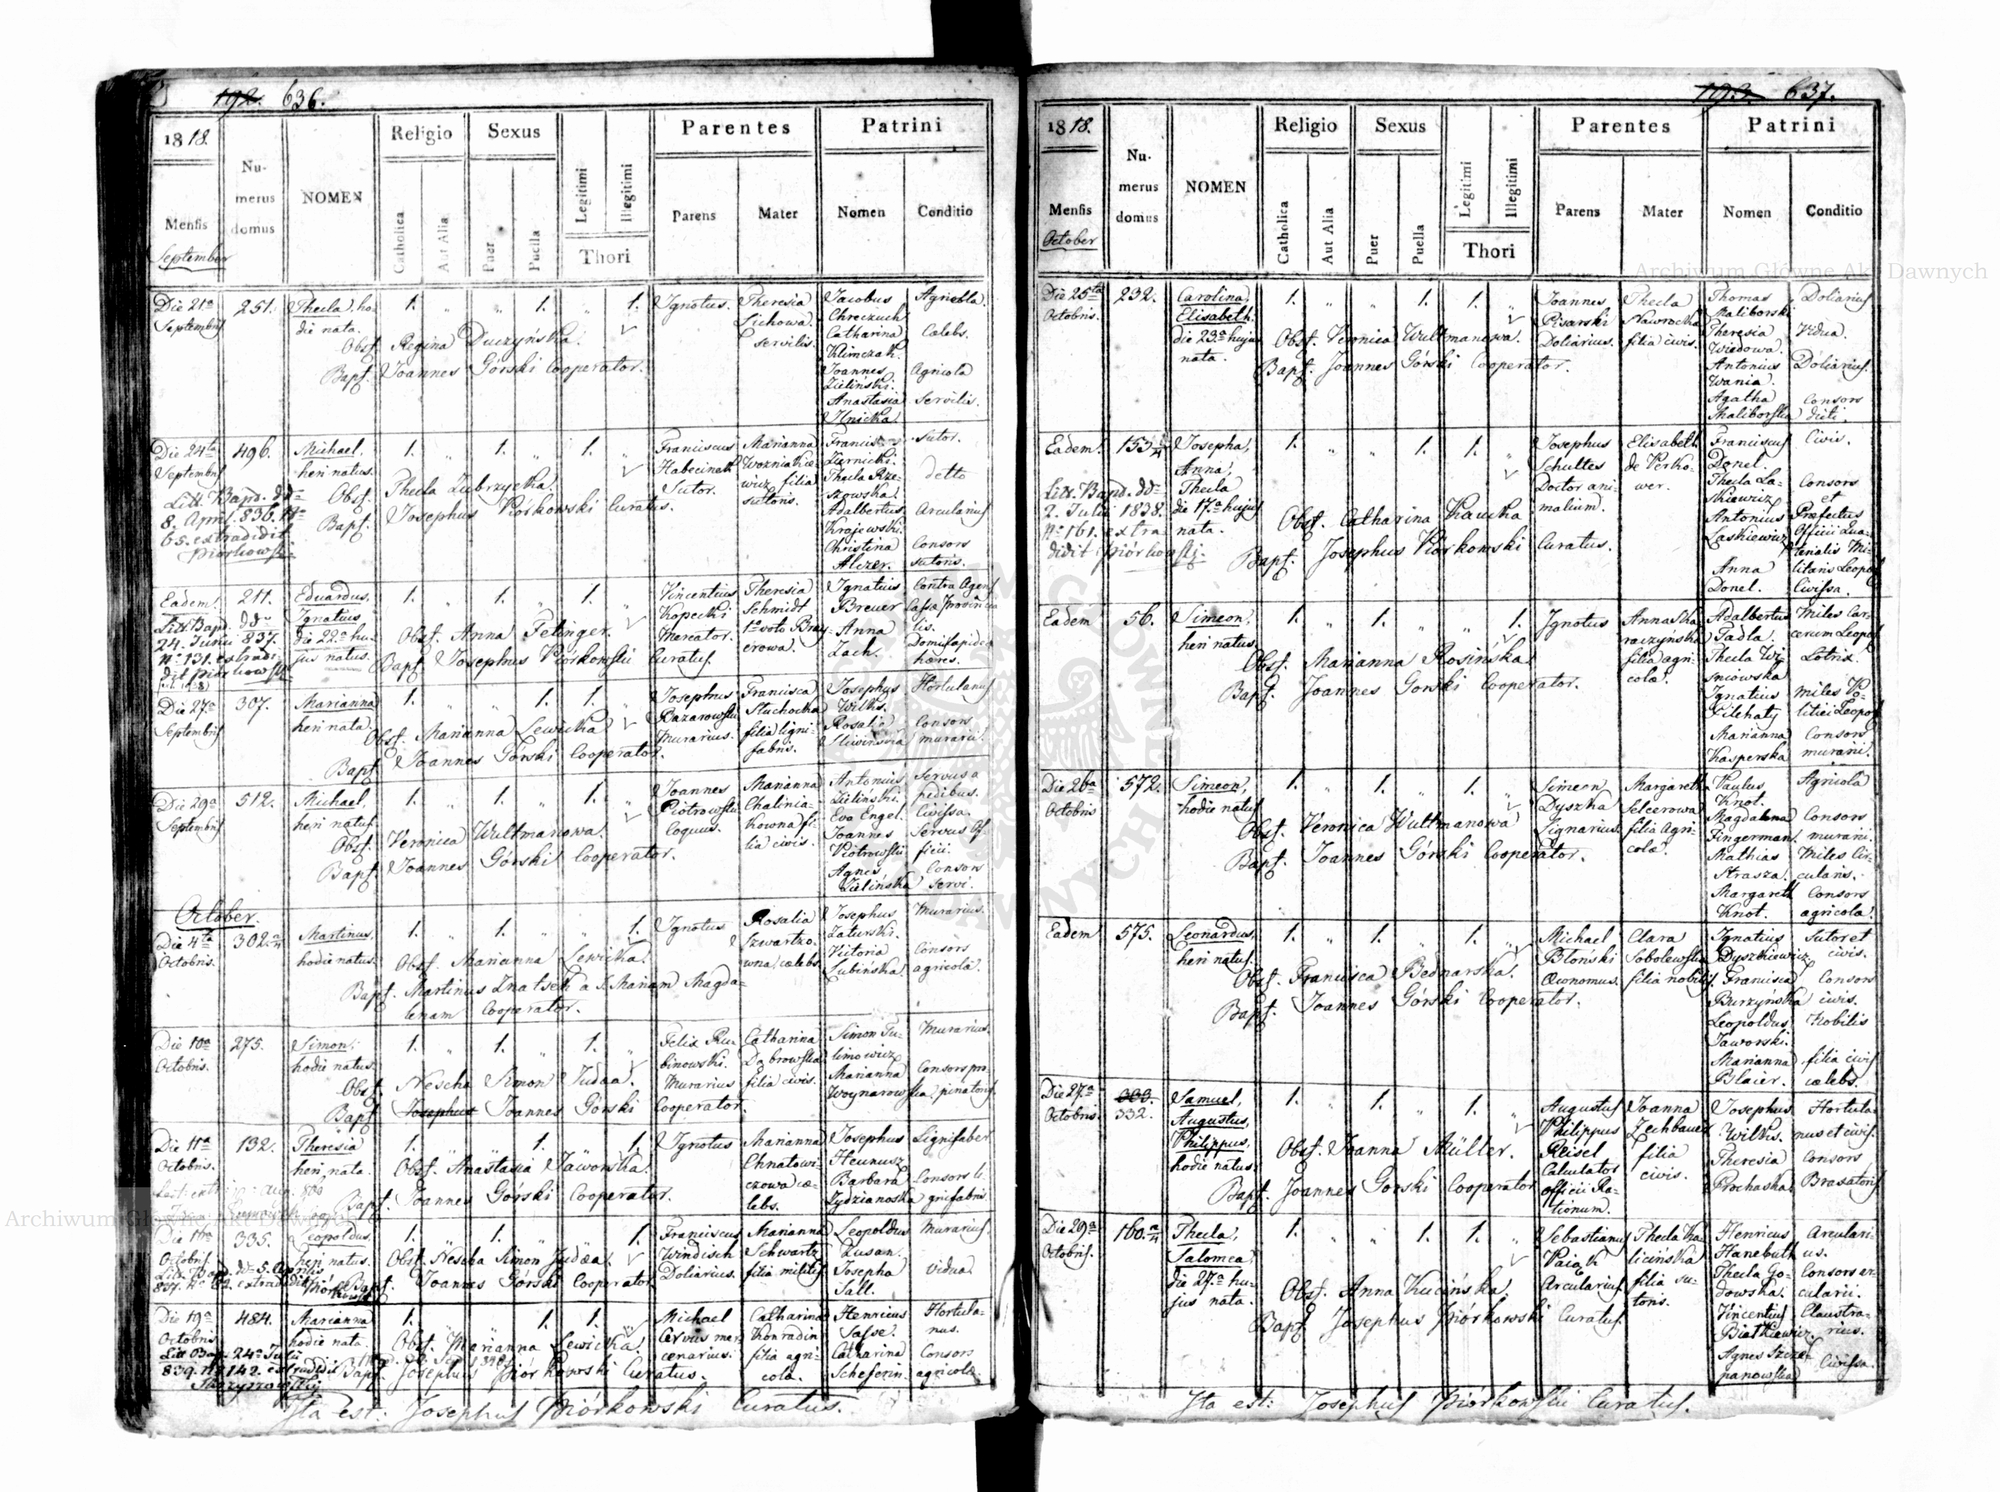 192. 636.
1818.
Mensis
September
Numerus domus
NOMEN
Religio
Catholica
Aut Alia
Sexus
Puer
Puella
Legitimi
Illegitimi
Thori
Parentes
Parens
Mater
Patrini
Nomen
Conditio
Die 21a Septembris
251.
Thecla, hodie nata.
1. „ „ 1. „ 1.
Ignotus.
Theresia Lichowa servilis.
Jacobus Chreczuch
Catharina Klimczak.
Joannes Zieliński.
Anastasia Hnicka
Agricola.
Caleбs.
Agricola
Servilis.
Obst. Regina Duczyńska.
Bapt. Joannes Górski Cooperator.
Die 24ta Septembris
496.
Michael, heri natus.
1. „ 1. „ 1. „
Franciscus Sutor.
Marianna filia sutoris.
Franciscus Ziernicki.
Thecla
Adalbertus Krajewski.
Christina Alexer.
Sutor.
detto
Arcularius
Consors sutoris.
Litt. Bapt. ddto 8. April. 836. No 65. extradidit Piórkowski
Obst. Thecla Zubrzycka.
Bapt. Josephus Piórkowski Curatus.
Eadem.
211.
Eduardus, Ignatius die 22a hujus natus.
1. „ 1. „ 1. „
Vincentius Kopecki Mercator.
Theresia Schmidt 1o voto
Ignatius Breuer
Anna Zach.
Contra Agens Cassæ Provincialis.
Litt. Bapt. ddto 24. Junii 837. No 131. extradidit Piórkowski
Obst. Anna Petinger.
Bapt. Josephus Piórkowski Curatus.
Die 27a Septembris
307.
Marianna heri nata.
1. „ „ 1. 1. „
Josephus Bazarowski Murarius.
Francisca Stuchocka filia lignifabris.
Josephus Wilks.
Rosalia Sliwińska
Hortulanus
Consors murarii.
Obst. Marianna Lewicka
Bapt. Joannes Górski Cooperator.
Die 29a Septembris
512.
Michael, heri natus.
1. „ 1. „ 1. „
Joannes Piotrowski coquus.
Marianna Chaliniakowna filia civis.
Antonius Zieliński.
Eva Engel.
Joannes Piotrowski
Agnes Zielińska
Servus a pedibus.
Civissa.
Servus Officii
Consors servi.
Obst. Veronica Wultmanowa.
Bapt. Joannes Górski Cooperator.
October.
Die 4ta Octobris.
302.
Martinus, hodie natus.
1. „ 1. „ „ 1.
Ignotus
Rosalia Szwartzowna, cælebs.
Josephus Zaturski.
Victoria Lubińska.
Murarius.
Consors agricolæ.
Obst. Marianna Lewicka.
Bapt. Martinus Znatseh a S. Mariam Magdalenam Cooperator.
Die 10a Octobris.
275.
Simon, hodie natus.
1. „ 1. „ 1. „
Felix Rubinowski. Murarius
Catharina Dąbrowska filia civis.
Simon Tulimowicz
Marianna Woynarowska
Murarius.
Consors propinatoris.
Obst. Nescha Simon Judæa.
Bapt. Josephus Joannes Górski Cooperator.
Die 11a Octobris.
132.
Theresia heri nata.
1. „ „ 1. „ 1.
Ignotus
Marianna Chnatowiczowa cælebs.
Josephus Heunusz
Barbara Zydzianoska
Lignifaber
Consors lignifabris.
Obst. Anastasia Jaworska.
Bapt. Joannes Górski Cooperator.
335.
Leopoldus, heri natus.
1. „ 1. „ „ 1.
Franciscus Windisch Doliarius.
Marianna Schwartz filia militis
Leopoldus Zusam.
Josepha Sall.
Murarius.
Vidua.
Litt. Bapt. ddo 5. Aprilis 837. No 62. extradidit Piórkowski
Obst. Nescha Simon Judæa.
Bapt. Joannes Górski Cooperator
Die 19a Octobris
484.
Marianna hodie nata.
1. „ „ 1. 1. „
Michael Cervus mercenarius.
Catharina Konradin filia agricolæ.
Henricus Sasse.
Catharina Scheferin.
Hortulanus.
Consors agricolæ.
Litt. Bapt. 24a Julii 839. No 142. extradidit
Obst. Marianna Lewicka.
Bapt. Josephus Piórkowski Curatus.
Ita est: Josephus Piórkowski Curatus.
193. 637.
1818.
Mensis
October
Numerus domus
NOMEN
Religio
Catholica
Aut Alia
Sexus
Puer
Puella
Legitimi
Illegitimi
Thori
Parentes
Parens
Mater
Patrini
Nomen
Conditio
Die 25ta Octobris.
232.
Carolina, Elisabeth. die 23a hujus nata.
1. „ „ 1. 1. „
Joannes Pisarski Doliarius.
Thecla Nawrocka filia civis.
Thomas Maliborski
Theresia Wiedowa.
Antonius Wania.
Agatha Maliborska
Doliarius
Vidua.
Doliarius.
Consors dicti.
Obst. Veronica Wultmanowa.
Bapt. Joannes Górski Cooperator.
Eadem.
153
Josepha, Anna, Thecla die 17a hujus nata.
1. „ „ 1. 1. „
Josephus Schultes Doctor animalium.
Elisabeth de Verkower.
Franciscus Donel.
Thecla Laskiewicz
Antonius Laskiewicz
Anna Donel.
Civis.
Consors et
Præfectus Officii
Civissa.
Litt. Bapt. ddto 2. Julii 1838. No 161. extradidit Piórkowski.
Obst. Catharina Kawcka
Bapt. Josephus Piórkowski Curatus.
Eadem
56.
Simeon, heri natus.
1. „ 1. „ „ 1.
Ignotus
Anna Skaraczyńska filia agricolæ.
Adalbertus Padla.
Thecla Wiśniowska
Ignatius Filehaty
Marianna Kasperska
Miles Carcerum Leopol.
Lotrix.
Miles Politiei Leopol.
Consors murarii.
Obst. Marianna Rosińska
Bapt. Joannes Górski Cooperator.
Die 26ta Octobris
572.
Simeon, hodie natus
1. „ 1. „ 1. „
Simeon Dyszka Lignarius.
Margareth Selcerowa filia agricolæ.
Paulus Knot.
Magdalena Fingerman.
Mathias Strasza.
Margareth Knot.
Agricola
Consors murarii.
Miles Circularis.
Consors agricolæ.
Obst. Veronica Wultmanowa
Bapt. Joannes Górski Cooperator.
Eadem
575.
Leonardus, heri natus.
1. „ 1. „ 1. „
Michael Błoński Œconomus.
Clara Sobolewska filia nobilis.
Ignatius Dyszkiewicz
Francisca Burzynska
Leopoldus Jaworski.
Marianna Blaier.
Sutor et civis.
Consors civis.
Nobilis
filia civis cælebs.
Obst. Francisca Bednarska.
Bapt. Joannes Górski Cooperator.
Die 27a Octobris.
332.
Samuel, Augustus, Philippus, hodie natus
1. „ 1. „ 1. „
Augustus Philippus Reisel Calculator officii Rationum.
Joanna Zechbauer filia civis.
Josephus Wilks.
Theresia Prochaska
Hortulanus et civis.
Consors Braxatoris
Obst. Joanna Müller.
Bapt. Joannes Górski Cooperator
Die 29a Octobris.
160.
Thecla, Salomea, die 27a hujus nata.
1. „ „ 1. 1. „
Sebastianus Paiąk Arcularius
Thecla Kalicińska filia sutoris.
Henricus Hanebuth
Thecla Godowska.
Vincentius Białkiewicz.
Agnes Szczepanowska
Arcularius.
Consors arcularii.
Claustrarius.
Civissa.
Obst. Anna Kucińska.
Bapt. Josephus Piórkowski Curatus.
Ita est: Josephus Piórkowski Curatus.
Archiwum Główne Akt Dawnych
Archiwum Główne Akt Dawnych